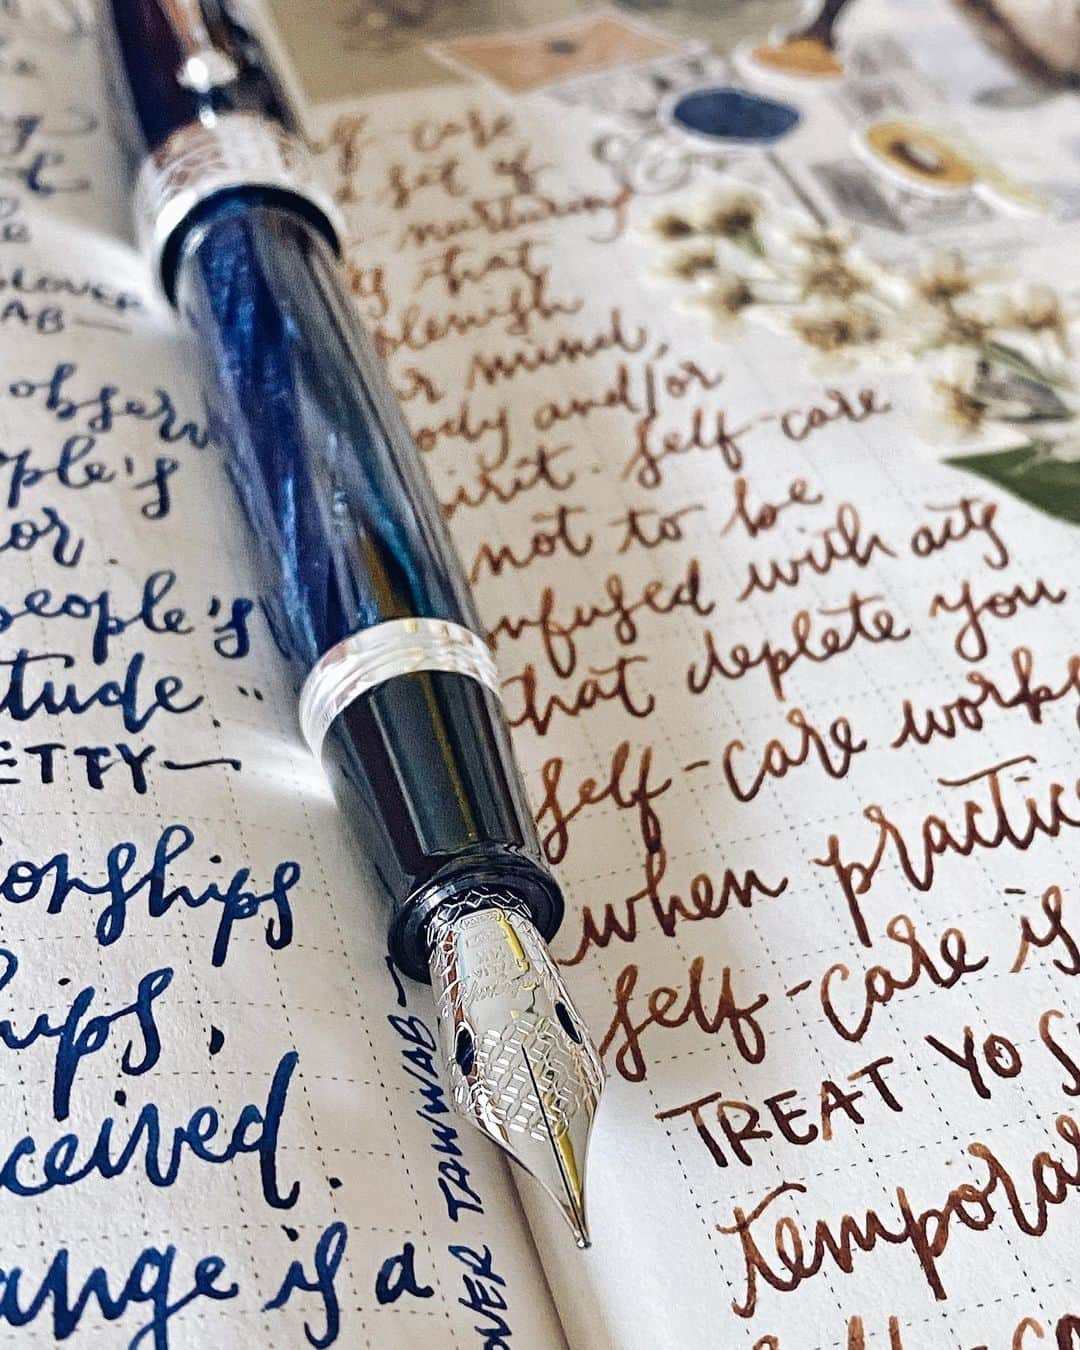 OLOVER
AB—
observ
ple's
or.
people's
tude."
ETTY—
onships
hips.
ceived.
ange is a
OVER TAWWAB—
lf-care
a set of
- nurturing
that
plenish
r mind,
ody and/or
pirit. Self-care
not to be
nfused with acts
that deplete you
Self-care works
when practic
Self-care is
TREAT YO S
temporar